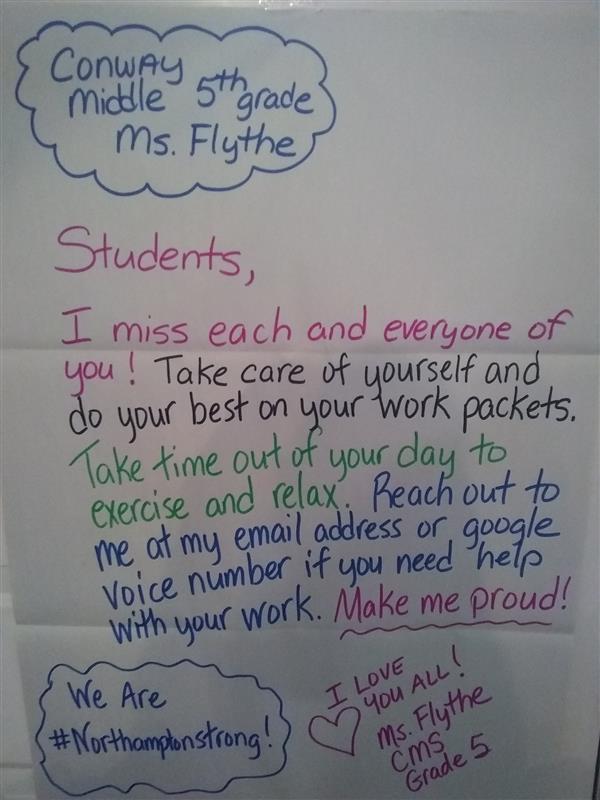 Conway
middle 5th grade
Ms. Flythe
Students,
I miss each and everyone of
you! Take care of yourself and
do your best on your work packets.
Take time out of your day to
exercise and relax. Reach out to
me at my email address or google
voice number if you need help
with your work. Make me proud!
We Are
#Northamptonstrong!
I LOVE
YOU ALL!
Ms. Flythe
CMS
Grade 5